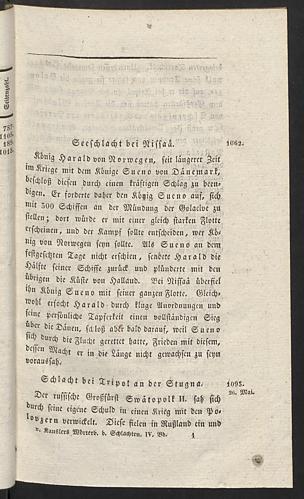 Seeschlacht bei Nissaå.
1062.
König Harald von Norwegen, seit längerer Zeit
im Kriege mit dem Könige Sueno von Dänemark,
beschloß diesen durch einen kräftigen Schlag zu been-
digen. Er forderte daher den König Sueno auf, sich
mit 500 Schiffen an der Mündung der Golaelve zu
stellen; dort würde er mit einer gleich starken Flotte
erscheinen, und der Kampf sollte entscheiden, wer Kö-
nig von Norwegen seyn sollte. Als Sueno an dem
festgesetzten Tage nicht erschien, sendete Harald die
Hälfte seiner Schiffe zurück und plünderte mit den
übrigen die Küste von Halland. Bei Nissaå überfiel
ihn König Sueno mit seiner ganzen Flotte. Gleich-
wohl erfocht Harald durch kluge Anordnungen und
seine persönliche Tapferkeit einen vollständigen Sieg
über die Dänen, schloß aber bald darauf, weil Sueno
sich durch die Flucht gerettet hatte, Frieden mit diesem,
dessen Macht er in die Länge nicht gewachsen zu seyn
voraussah.
Schlacht bei Tripol an der Stugna.
1093.
26. Mai.
Der russische Großfürst Swätopolk II. sah sich
durch seine eigene Schuld in einen Krieg mit den Po-
lovzern verwickelt. Diese fielen in Rußland ein und
v. Kauslers Wörterb. d. Schlachten, IV. Bd.
1
Seitenzahl.